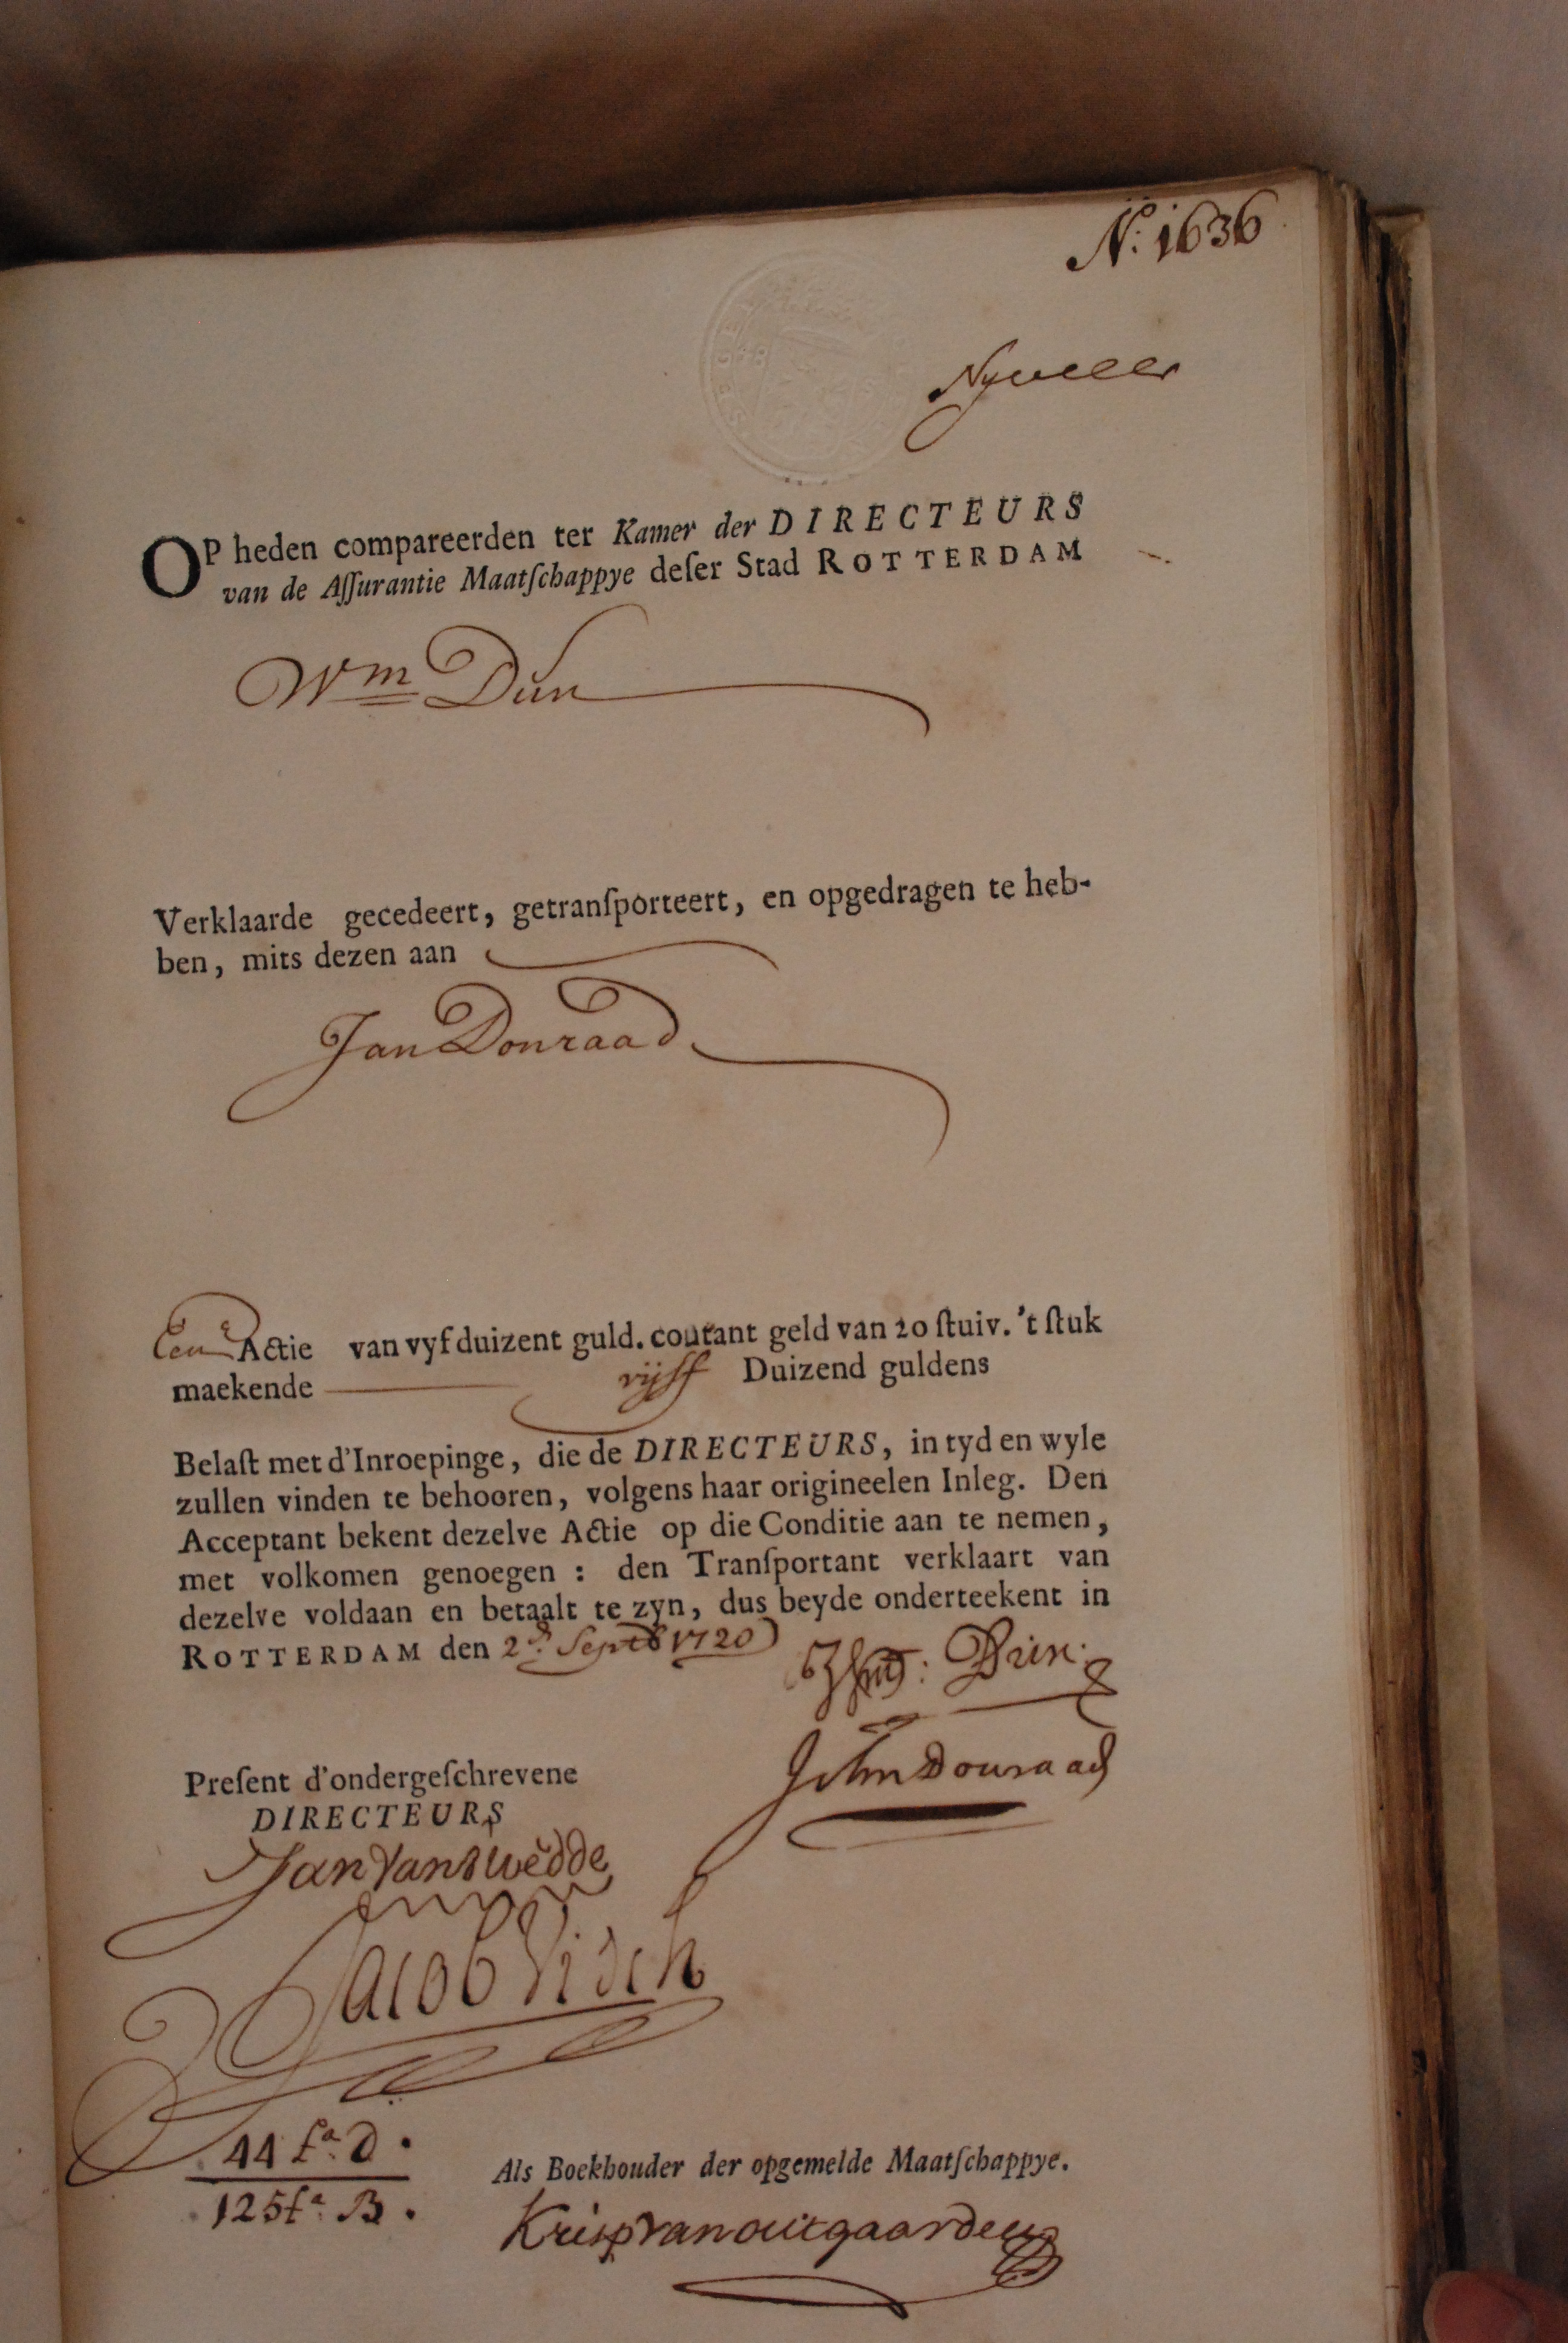 N.º 1636
OP heden compareerden ter Kamer der DIRECTEURS
van de Aſſurantie Maatſchappye deſer Stad ROTTERDAM
Wm Dun
Verklaarde gecedeert, getranſporteert, en opgedragen te heb-
ben, mits dezen aan
Jan Donraad
Een Actie van vyf duizent guld. coutant geld van 20 ſtuiv. 't ſtuk
maekende vijff Duizend guldens
Belaſt met d'Inroepinge, die de DIRECTEURS, in tyd en wyle
zullen vinden te behooren, volgens haar origineelen Inleg. Den
Acceptant bekent dezelve Actie op die Conditie aan te nemen,
met volkomen genoegen : den Tranſportant verklaart van
dezelve voldaan en betaalt te zyn, dus beyde onderteekent in
ROTTERDAM den 2.e Septb 1720
Dun
John Douraad
Preſent d'ondergeſchrevene
DIRECTEURS
Jan Van Swedde
Jacob Visch
44 fª. D.
125 fª. B.
Als Boekhouder der opgemelde Maatſchappye.
Krisp van outgaarden